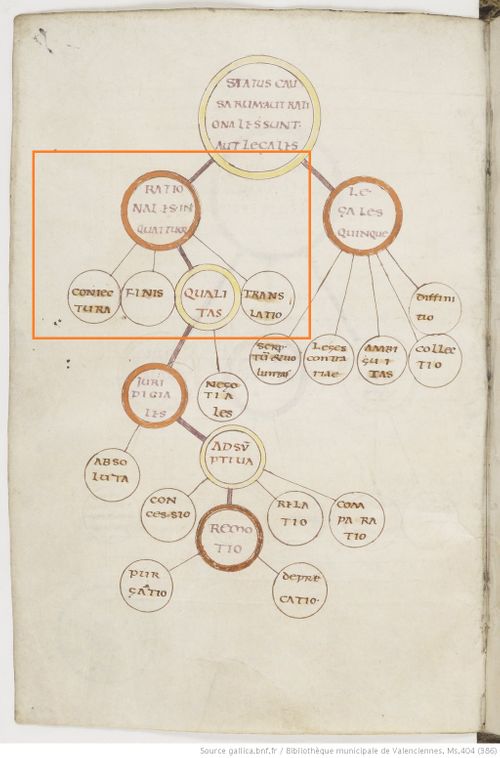 STATUS CAU
SARUM·AUT RATI
ONALES SUNT·
AUT LEGALES
RATIO
NALES IN
QUATTUOR
LE
GALES
QUINQUE
CONIEC
TURA
FINIS
QUALI
TAS
TRANS
LATIO
DIFFINI
TIO
LEGES
CONTRA
RIAE
AMBI
GUI
TAS
COLLEC
TIO
IURI
DICIA
LES
NEGO
TIA
LES
ABSO
LUTA
ADSŪ
PTIVA
CON
CESSIO
RELA
TIO
COM
PARA
TIO
REMO
TIO
PUR
GATIO
DEPRE
CATIO·
Source gallica.bnf.fr / Bibliothèque municipale de Valenciennes, Ms.404 (386)